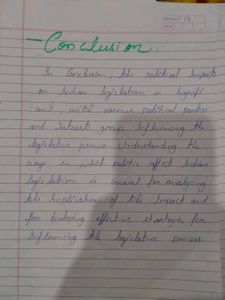 Conclusion
In Conclusion, the political Impact
on Indian legislation is signifi
-cant, with various political parties
and interest group Influencing the
legislative process Understanding the
ways in which politics affect Indian
legislation is crucial for analyzing
the Implication of the Impact and
for developing effective strategies for
Influencing the legislative process